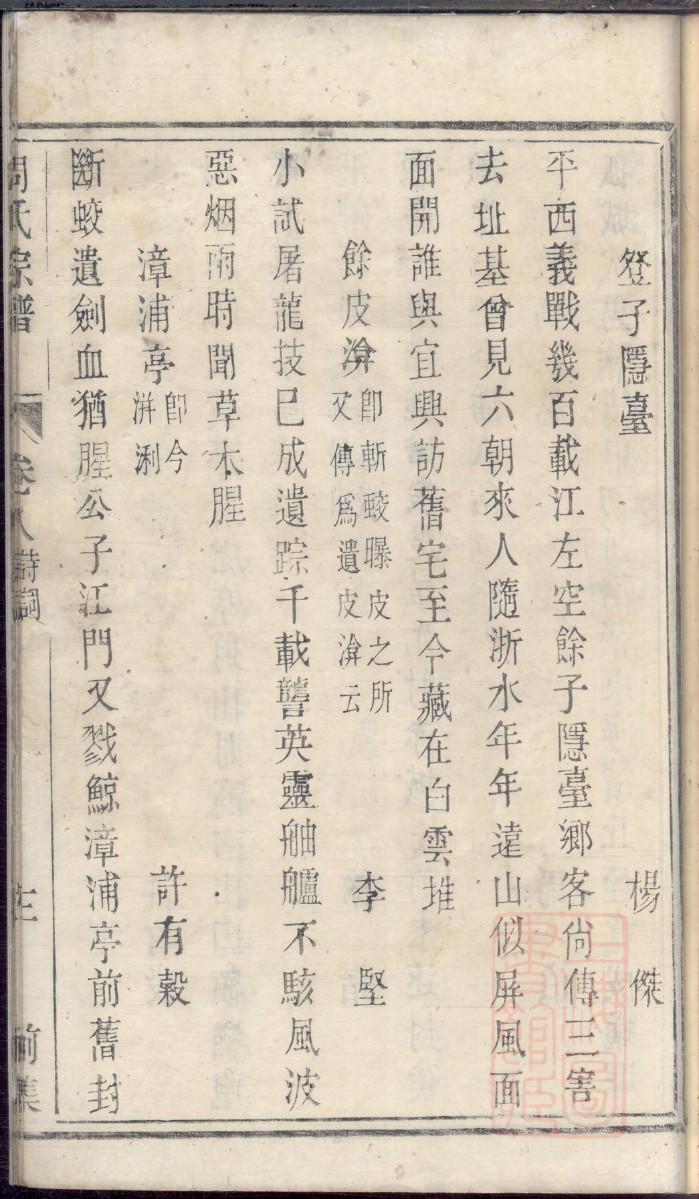 登子隱臺
楊傑
平西義戰幾百載江左空餘子隱臺鄉客尙傳三害
去址基曾見六朝來人隨浙水年年遠山似屏風面
面開誰與宜興訪舊宅至今藏在白雲堆
餘皮渰卽斬蛟曝皮之所
又傳爲遺皮渰云
李堅
小試屠龍技已成遺踪千載讋英靈舳艫不駭風波
惡烟雨時聞草木腥
漳浦亭卽今
洴浰
許有穀
斷蛟遺劍血猶腥公子江門又戮鯨漳浦亭前舊封
周氏宗譜
卷八詩詞
前集